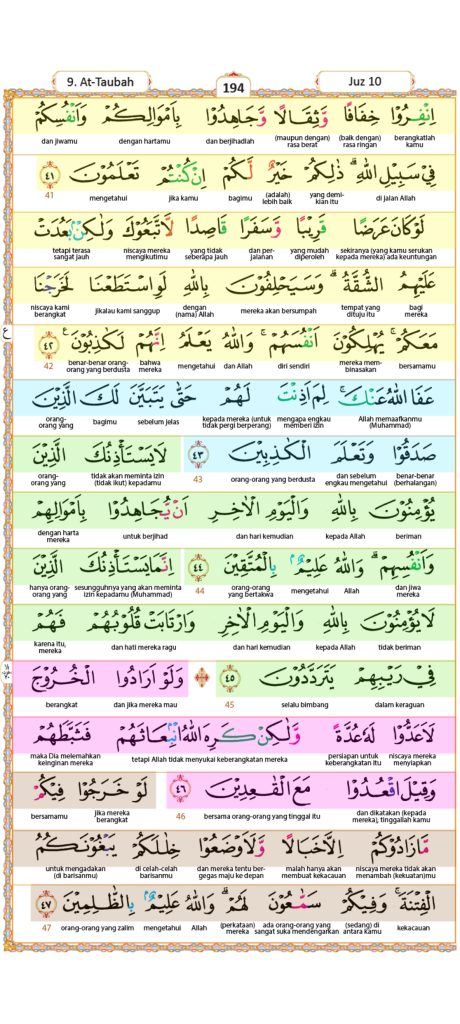 9. At-Taubah
194
Juz 10
اِنْفِرُوْا خِفَافًا وَّثِقَالًا وَّجَاهِدُوْا بِاَمْوَالِكُمْ وَاَنْفُسِكُمْ
berangkatlah kamu (baik dengan) rasa ringan (maupun dengan) rasa berat dan berjihadlah dengan hartamu dan jiwamu
فِيْ سَبِيْلِ اللّٰهِ ۗ ذٰلِكُمْ خَيْرٌ لَّكُمْ اِنْ كُنْتُمْ تَعْلَمُوْنَ ٤١
di jalan Allah yang demi-kian itu (adalah) lebih baik bagimu jika kamu mengetahui 41
لَوْ كَانَ عَرَضًا قَرِيْبًا وَّسَفَرًا قَاصِدًا لَّاتَّبَعُوْكَ وَلٰكِنْۢ بَعُدَتْ
sekiranya (yang kamu serukan kepada mereka) ada keuntungan yang mudah diperoleh dan per-jalanan yang tidak seberapa jauh niscaya mereka mengikutimu tetapi terasa sangat jauh
عَلَيْهِمُ الشُّقَّةُ ۗ وَسَيَحْلِفُوْنَ بِاللّٰهِ لَوِ اسْتَطَعْنَا لَخَرَجْنَا
bagi mereka tempat yang dituju itu mereka akan bersumpah dengan (nama) Allah jikalau kami sanggup niscaya kami berangkat
ع
مَعَكُمْ ۚ يُهْلِكُوْنَ اَنْفُسَهُمْ ۚ وَاللّٰهُ يَعْلَمُ اِنَّهُمْ لَكٰذِبُوْنَ ࣖ ٤٢
bersamamu mereka mem-binasakan diri sendiri dan Allah mengetahui bahwa mereka benar-benar orang-orang yang berdusta 42
عَفَا اللّٰهُ عَنْكَ ۚ لِمَ اَذِنْتَ لَهُمْ حَتّٰى يَتَبَيَّنَ لَكَ الَّذِيْنَ
Allah memaafkanmu (Muhammad) mengapa engkau memberi izin kepada mereka (untuk tidak pergi berperang) sebelum jelas bagimu orang-orang yang
صَدَقُوْا وَتَعْلَمَ الْكٰذِبِيْنَ ٤٣ لَا يَسْتَأْذِنُكَ الَّذِيْنَ
benar-benar (berhalangan) dan sebelum engkau mengetahui orang-orang yang berdusta 43 tidak akan meminta izin (tidak ikut) kepadamu orang-orang yang
يُؤْمِنُوْنَ بِاللّٰهِ وَالْيَوْمِ الْاٰخِرِ اَنْ يُّجَاهِدُوْا بِاَمْوَالِهِمْ
beriman kepada Allah dan hari kemudian untuk berjihad dengan harta mereka
وَاَنْفُسِهِمْ ۗ وَاللّٰهُ عَلِيْمٌۢ بِالْمُتَّقِيْنَ ٤٤ اِنَّمَا يَسْتَأْذِنُكَ الَّذِيْنَ
dan jiwa mereka Allah mengetahui orang-orang yang bertakwa 44 sesungguhnya yang akan meminta izin kepadamu (Muhammad) hanya orang-orang yang
لَا يُؤْمِنُوْنَ بِاللّٰهِ وَالْيَوْمِ الْاٰخِرِ وَارْتَابَتْ قُلُوْبُهُمْ فَهُمْ
tidak beriman kepada Allah dan hari kemudian dan hati mereka ragu karena itu, mereka
فِيْ رَيْبِهِمْ يَتَرَدَّدُوْنَ ٤٥ وَلَوْ اَرَادُوا الْخُرُوْجَ
dalam keraguan selalu bimbang 45 dan jika mereka mau berangkat
لَاَعَدُّوْا لَهٗ عُدَّةً وَّلٰكِنْ كَرِهَ اللّٰهُ انْۢبِعَاثَهُمْ فَثَبَّطَهُمْ
niscaya mereka menyiapkan persiapan untuk keberangkatan itu tetapi Allah tidak menyukai keberangkatan mereka maka Dia melemahkan keinginan mereka
وَقِيْلَ اقْعُدُوْا مَعَ الْقٰعِدِيْنَ ٤٦ لَوْ خَرَجُوْا فِيْكُمْ
dan dikatakan (kepada mereka), tinggallah kamu bersama orang-orang yang tinggal itu 46 jika mereka berangkat bersamamu
مَّا زَادُوْكُمْ اِلَّا خَبَالًا وَّلَا۟اَوْضَعُوْا خِلٰلَكُمْ يَبْغُوْنَكُمُ
niscaya mereka tidak akan menambah (kekuatan)mu malah hanya akan membuat kekacauan dan mereka tentu ber-gegas maju ke depan di celah-celah barisanmu untuk mengadakan (di barisanmu)
الْفِتْنَةَ ۚ وَفِيْكُمْ سَمّٰعُوْنَ لَهُمْ ۗ وَاللّٰهُ عَلِيْمٌۢ بِالظّٰلِمِيْنَ ٤٧
kekacauan (sedang) di antara kamu ada orang-orang yang sangat suka mendengarkan (perkataan) mereka Allah mengetahui orang-orang yang zalim 47